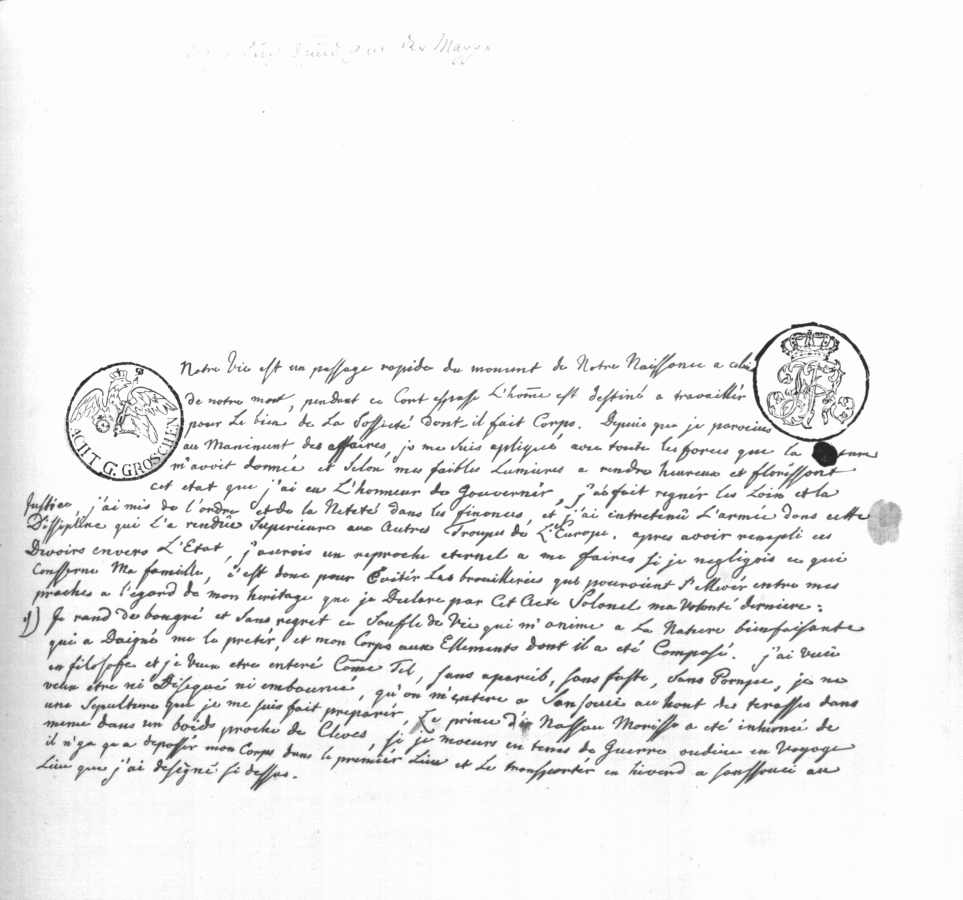 der Mappe
Notre Vie est un passage rapide du moment de Notre Naissance a celui
de notre mort, pendant ce Cort espase L'home est destiné a travailler
pour Le bien de La Sossieté dont il fait Corps. Depuis que je parvins
au Maniment des affaires, je me suis appliqué avec toute les forces que la
m'avoit donnée et Selon mes faibles Lumieres a rendre heureux et florissant
cet etat que j'ai eu L'honneur de Gouvernér, j'ai fait regnér les Loix et la
Justice, j'ai mis de l'ordre et de la Neteté dans les finances, et j'ai entretenü L'armée dans cette
Dissipline qui L'a rendüe Superieure aux Autres Troupes de L'Europe. apres avoir rempli ces
Dwoirs envers L'Etat, j'aurois un reproche eternel a me faires si je negligois ce qui
Consserne Ma famille, c'est donc pour Evitér Les brouilleries qui pouroient s'Elevér entre mes
proches a l'égard de mon heritage que je Declare par Cet Acte Solonel ma Volonté derniere:
1) Je rand de bongré et Sans regret ce Soufle de Vie qui m'anime a La Nature bienfaisante
qui a Daigné me le pretér, et mon Corps aux Ellements dont il a été Composé. j'ai vecü
en filosofe et je Veux etre enteré Come Tel, sans apareib, sans faste, sans Pompe, je ne
veux etre ni Disequé ni embaumé, qu'on m'entere a Sansouci au haut des terasses dans
une Sepulture que je me suis fait preparér, Le prince de Nassau Morisse a été inhumé de
meme dans un bois proche de Cleves, si je moeurs en tems de Guerre ou dire en Voyage
il n'y a qu a deposér mon Corps dans le premier Lieu et Le transportér en hiverd a sanssouci au
Lieu que j'ai designé si dessus.
ACHT G. GROSCHEN
FR